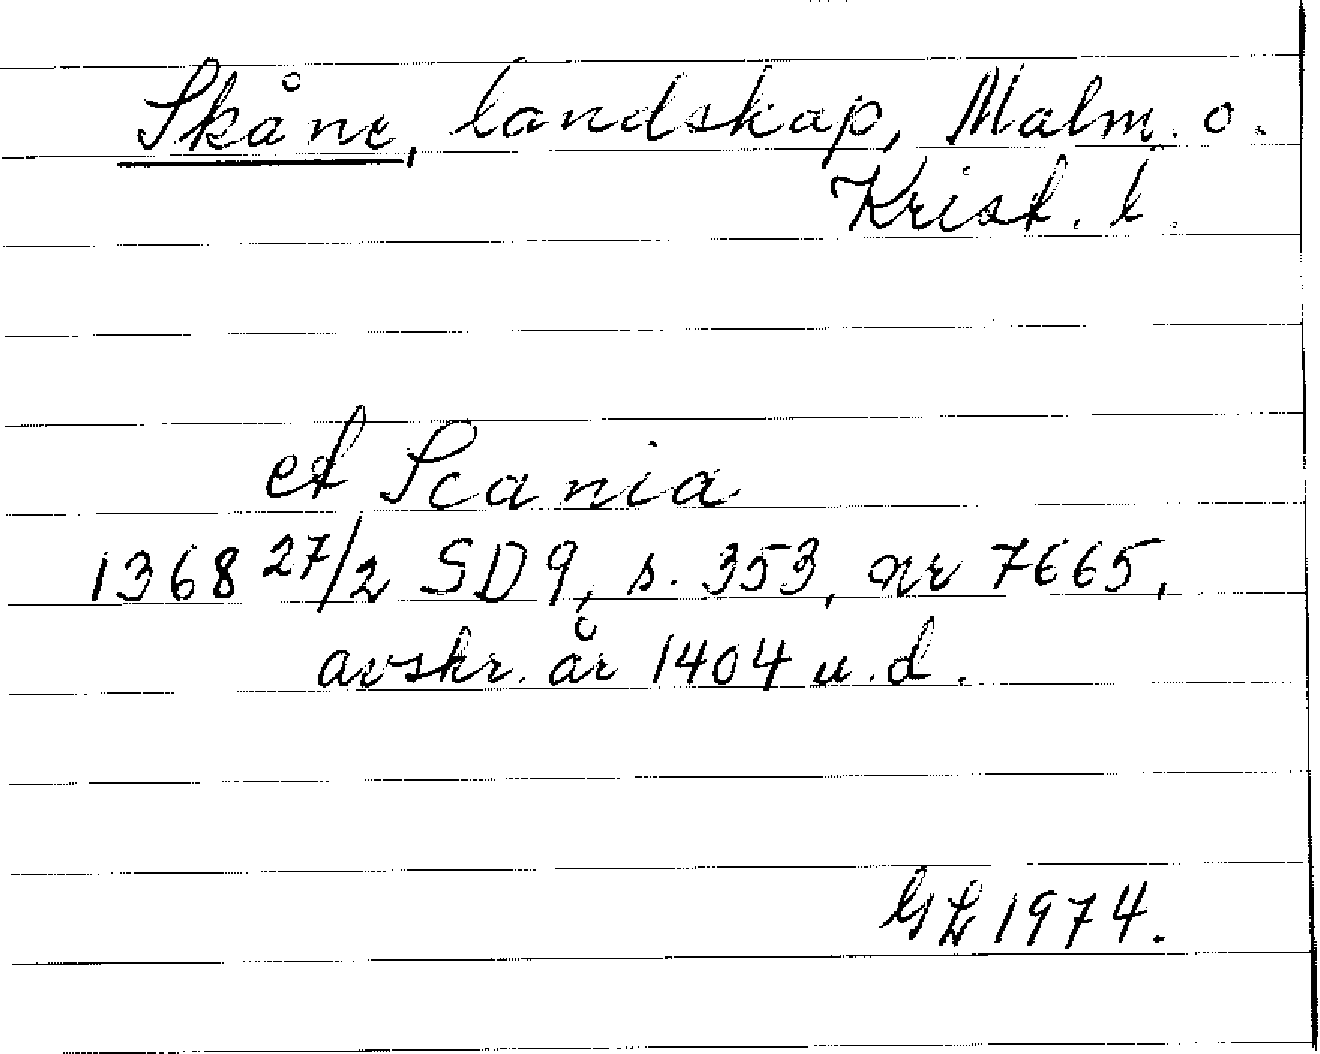 Skåne, landskap, Malm. o.
Krist. l.
et Scania
1368 27/2 SD 9, s. 353, nr 7665,
avskr. år 1404 u. d.
GL 1974.